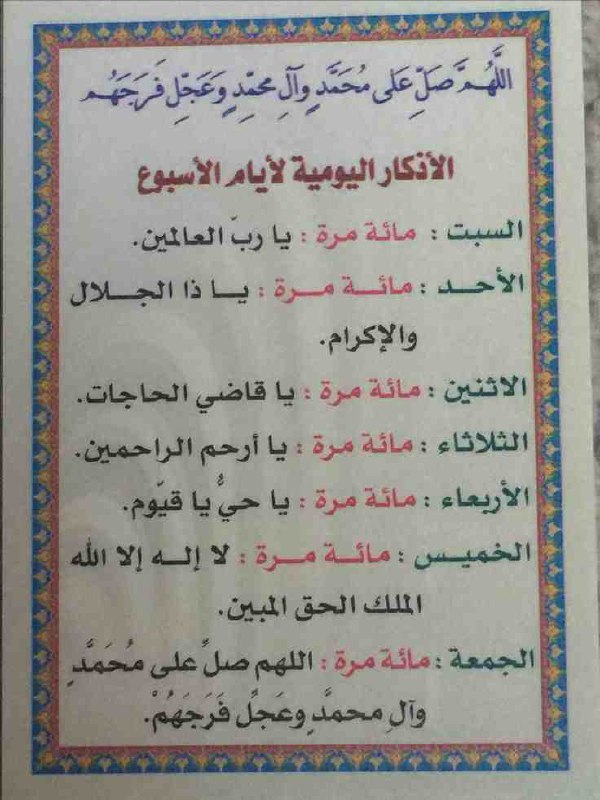 اللَّهُمَّ صَلِّ عَلى مُحَمَّدٍ وَآلِ مُحَمَّدٍ وَعَجِّلْ فَرَجَهُم
الأذكار اليومية لأيام الأسبوع
السبت : مائة مرة : يا ربّ العالمين.
الأحــد : مائــة مــرة : يــا ذا الجــلال
والإكرام.
الاثنين : مائة مرة : يا قاضي الحاجات.
الثلاثاء : مائة مرة : يا أرحم الراحمين.
الأربعاء : مائة مرة : يا حيُّ يا قيّوم.
الخميس : مائــة مــرة : لا إلــه إلا الله
الملك الحق المبين.
الجمعة : مائة مرة : اللهم صلِّ على مُحَمَّدٍ
وآلِ محمَّدٍ وعَجِّلْ فَرَجَهُمْ.